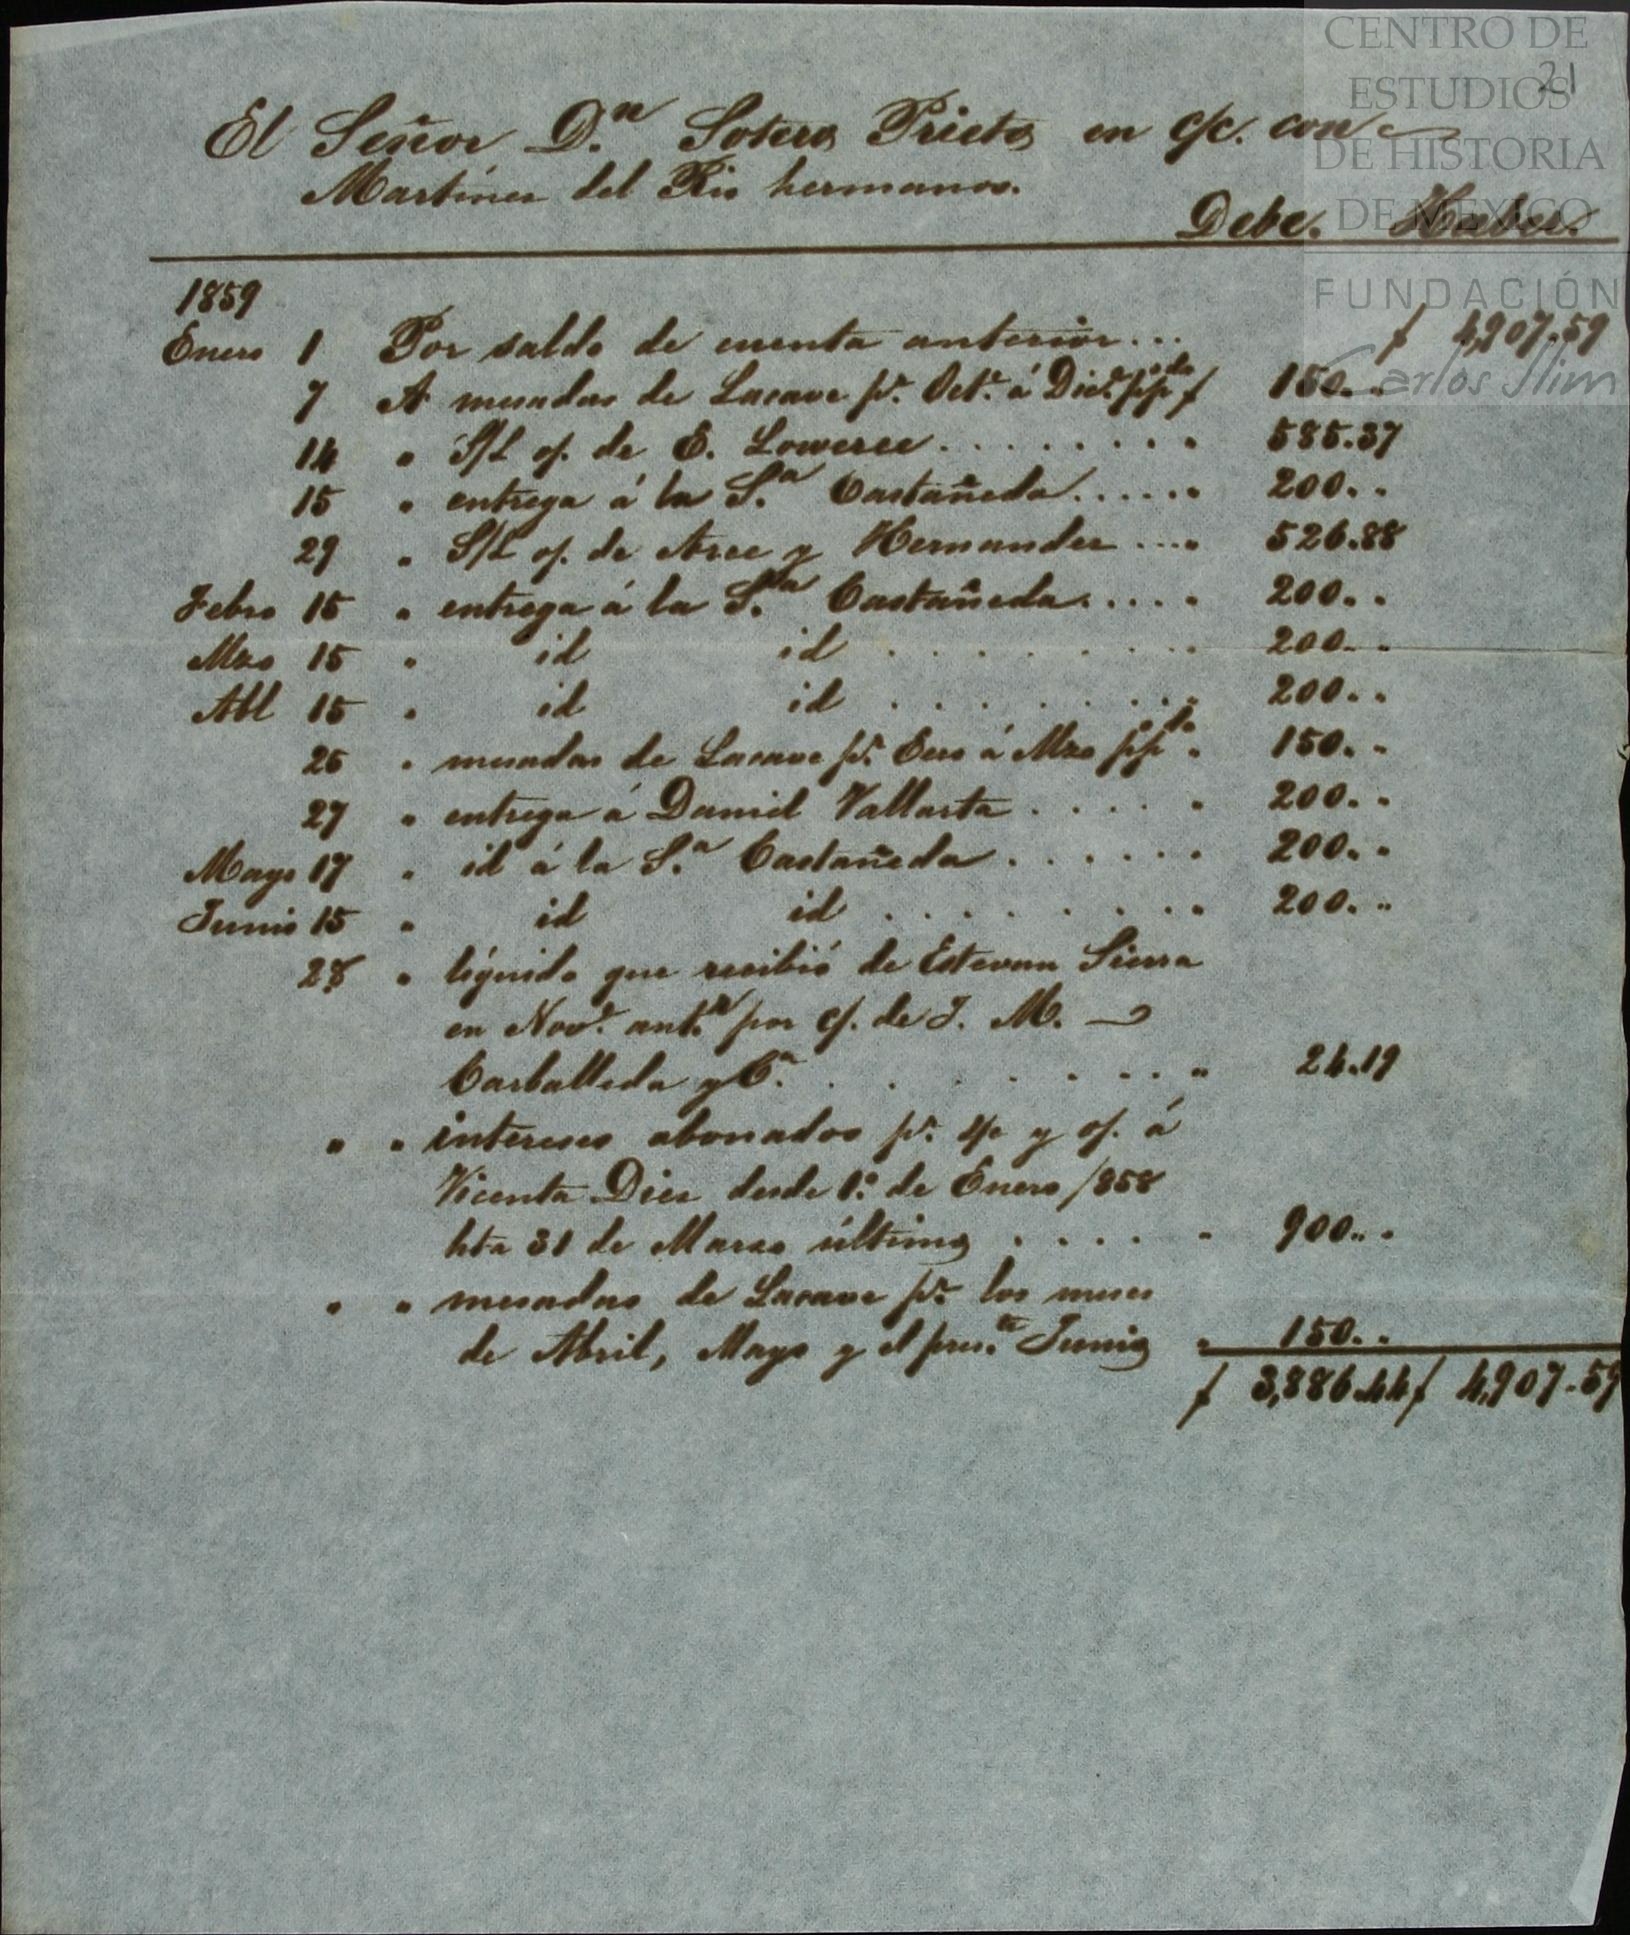 CENTRO DE
ESTUDIOS
DE HISTORIA
DE MEXICO
FUNDACIÓN
Carlos Slim
21
El Señor D.n Sotero Prieto en c/c. con
Martinez del Rio hermanos.
Debe. Haber.
1859
Enero 1 Por saldo de cuenta anterior... $ 4,907.59
7 A mesadas de Lacave pr. Oct.e á Dice. ppdo $ 150..
14 " S/L of. de E. Loweree......... " 585.37
15 " entrega á la S.a Castañeda...... 200..
29 " S/L of. de Arce y Hernandez.... 526.88
Febro 15 " entrega á la S.a Castañeda..... 200..
Mzo 15 " id id ........ 200..
Abl 15 " id id ........ 200..
25 " mesadas de Lacave pr. Eno á Mzo ppdo " 150..
27 " entrega á Daniel Vallarta..... " 200..
Mayo 17 " id á la S.a Castañeda....... 200..
Junio 15 " id id ......... 200.."
28 " líquido que recibió de Estevan Sierra
en Nove. ant.r por c/. de J. M.
Carballeda y C.a ......... " 24.19
" " intereses abonados pr. s/c y of. á
Vicenta Diez desde 1.o de Enero /858
hta 31 de Marzo último..... " 900...
" " mesadas de Lacave pr. los meses
de Abril, Mayo y el pres.te Junio " 150..
$ 3,886.44 $ 4,907.59